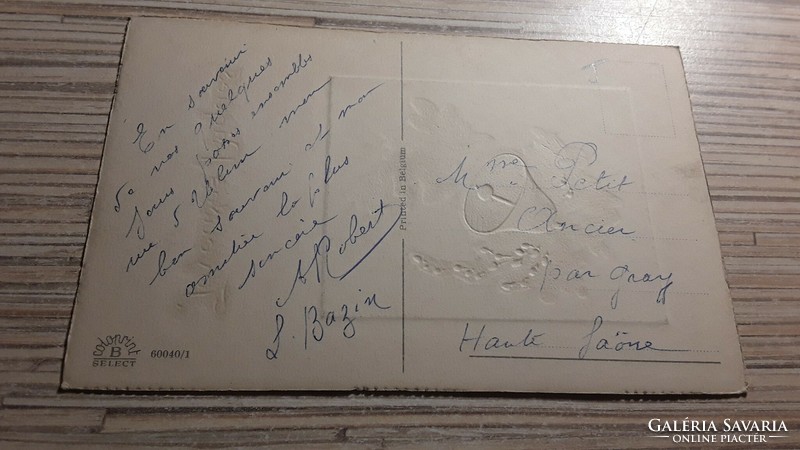 En souvenir
de nos quelques
jours passés ensembles
rue
mon
bon souvenir et mon
amitiée la plus
sincère
A Robert
L. Bazin
Colorprint
B
SELECT
60040/1
Printed in Belgium
Mme Petit
Ancier
par Gray
Haute Saône
GALÉRIA SAVARIA
ONLINE PIACTÉR
www.galeriasavaria.hu